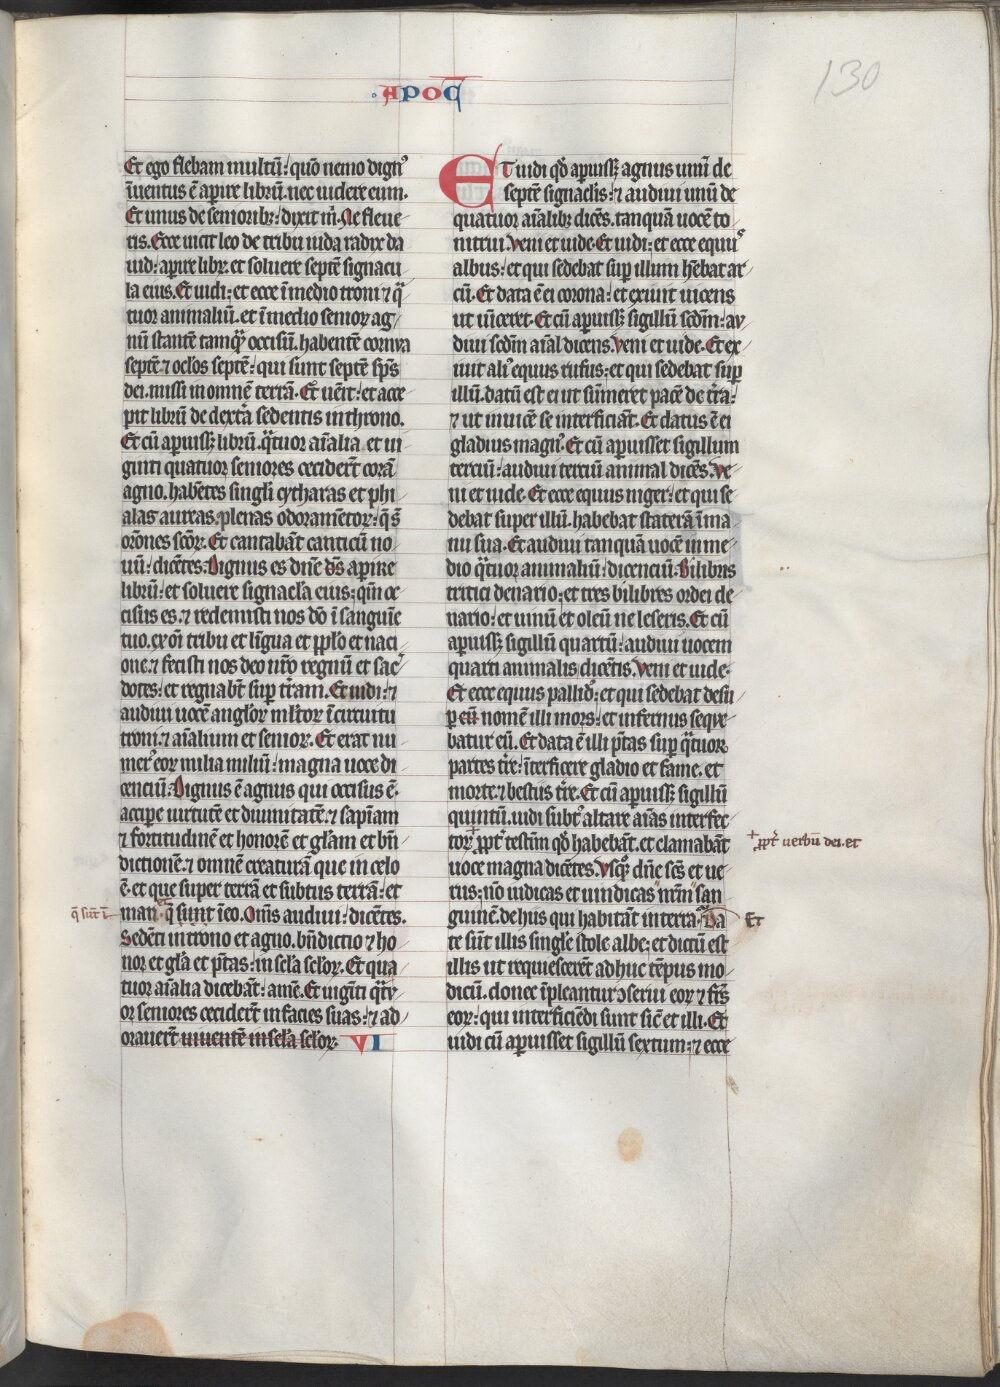 130
APOC̄
Et ego flebam multū: quōn nemo dignꝰ
īuentus ē apire librū. nec uidere eum.
Et unus de senioribꝫ: dixit m̄. Ne fleue
ris. Ecce uicit leo de tribu iuda radix da
uid: apire libꝝ et soluere septē signacu
la eius. Et uidi: et ecce ī medio troni ⁊ q̄
tuor animaliū. et ī medio senioꝝ ag
nū stantē tamqͣꝫ occisū. habentē cornua
septē ⁊ oclos septē: qui sunt septē sp̄s
dei. missi in omnē terrā. Et uēit: et acce
pit librū de dext̄a sedentis in throno.
Et cū apuissꝫ librū. q̄tuor aīalia et ui
ginti quatuor seniores cecider̄t corā
agno. habētes singl̄i cytharas et phi
alas aureas. plenas odoramētoꝝ: q̄ s̄
or̄ones sc̄oꝝ. Et cantabāt canticū no
uū: dicētes. Dignus es dn̄e ds̄ apire
librū: et soluere signacl̄a eius: qm̄ oc
cisus es. ⁊ redemisti nos dō ī sanguīe
tuo. ex oī tribu et līgua et pplo et naci
one. ⁊ fecisti nos deo nr̄o regnū et sacꝰ
dotes: et regnabt̄ sup t̄ram. Et uidi: ⁊
audiui uocē angloꝝ ml̄toꝝ ī circuitu
troni. ⁊ aīalium et senioꝝ. Et erat nu
merꝰ eoꝝ milia miliū: magna uoce di
cenciū. Dignus ē agnus qui occisus ē.
accipe uirtutē et diuinitatē. ⁊ sapīam
⁊ fortitudinē et honorē et gl̄am et bn̄
dictionē. ⁊ omnē creaturā que in celo
ē. et que super terrā et subtus terrā: et
q̄ sūt ī
mari. et q̄ sunt ī eo. Om̄s audiui: dicētes.
Sedēti in trono et agno. bn̄dictio ⁊ ho
nor et gl̄a et p̄tas: in scl̄a scl̄oꝝ. Et qua
tuor aīalia dicebāt: amē. Et uigīti q̄tu
or seniores cecider̄t in facies suas: ⁊ ad
orauer̄t uiuentē in scl̄a scl̄oꝝ. VI
ET uidi qd̄ apuissꝫ agnus unū de
septē signaclis: ⁊ audiui unū de
quatuor aīalibꝫ dicēs. tanquā uocē to
nitrui. Veni et uide. Et uidi: et ecce equuˢ
albus: et qui sedebat sup illum hēbat ar
cū. Et data ē ei corona: et exiuit uicens
ut uīceret. Et cū apuissꝫ sigillū scdm̄: au
diui scdm̄ aīal dicens. Veni et uide. Et ex
iuit aliꝰ equus rufus: et qui sedebat sup
illū. datū est ei ut sūmeret pacē de t̄ra:
⁊ ut inuicē se interficiāt. Et datus ē ei
gladius magnꝰ. Et cū apuisset sigillum
terciū: audiui terciū animal dicēs. Ve
ni et uide. Et ecce equus niger: et qui se
debat super illū. habebat staterā ī ma
nu sua. Et audiui tanquā uocē in me
dio q̄tuor animaliū: dicenciū. Bilibris
tritici denario: et tres bilibres ordei de
nario: et uinū et oleū ne leseris. Et cū
apuissꝫ sigillū quartū: audiui uocem
quarti animalis dicētis. Veni et uide.
Et ecce equus pallidꝰ: et qui sedebat desu
p eū nomē illi mors: et infernus seque
batur eū. Et data ē illi p̄tas sup q̄tuor
partes t̄re: īterficere gladio et fame. et
morte. ⁊ bestiis t̄re. Et cū apuissꝫ sigillū
quintū. uidi subtꝰ altare aīas interfec
toꝝ + ꝓpt̄ testīm qd̄ habebāt. et clamabāt
+ ꝓpt̄ uerbū dei. et
uoce magna dicētes. Vsqꝫ dn̄e sc̄s et ue
rus: nō iudicas et uindicas nr̄m san
guinē. de hiis qui habitāt in terra. Da
Et
te sūt illis singl̄e stole albe: et dictū est
illis ut requiescerēt adhuc tēpus mo
dicū. donec īpleantur ɔserui eoꝝ ⁊ fr̄s
eoꝝ: qui interficiēdi sunt sic̄ et illi. Et
uidi cū apuisset sigillū sextum: ⁊ ecce